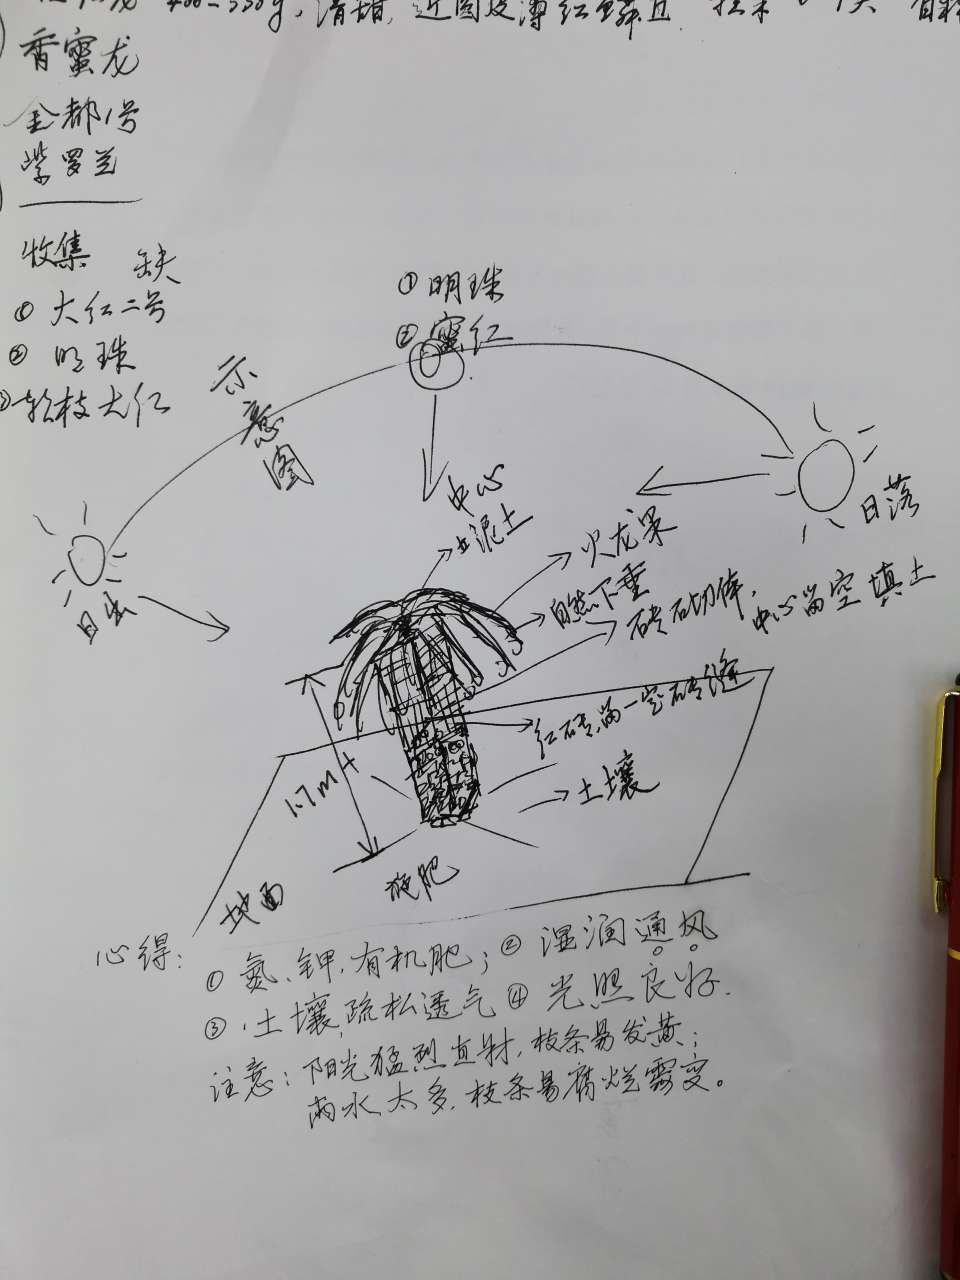 400-550g,清甜,近圆皮薄红鲜且
香蜜龙
金都1号
紫罗兰
收集 缺
① 大红二号
② 明珠
③ 软枝大红
示意图
① 明珠
② 蜜红
中心
泥土
日出
日落
火龙果
自然下垂
砖石切体,
中心留空填土
红砖,留一定砖缝
土壤
1.7m+
地面
施肥
心得:① 氮、钾,有机肥;② 湿润通风
③ 土壤疏松透气 ④ 光照良好.
注意:阳光猛烈直射,枝条易发黄;
雨水太多,枝条易腐烂霉变。